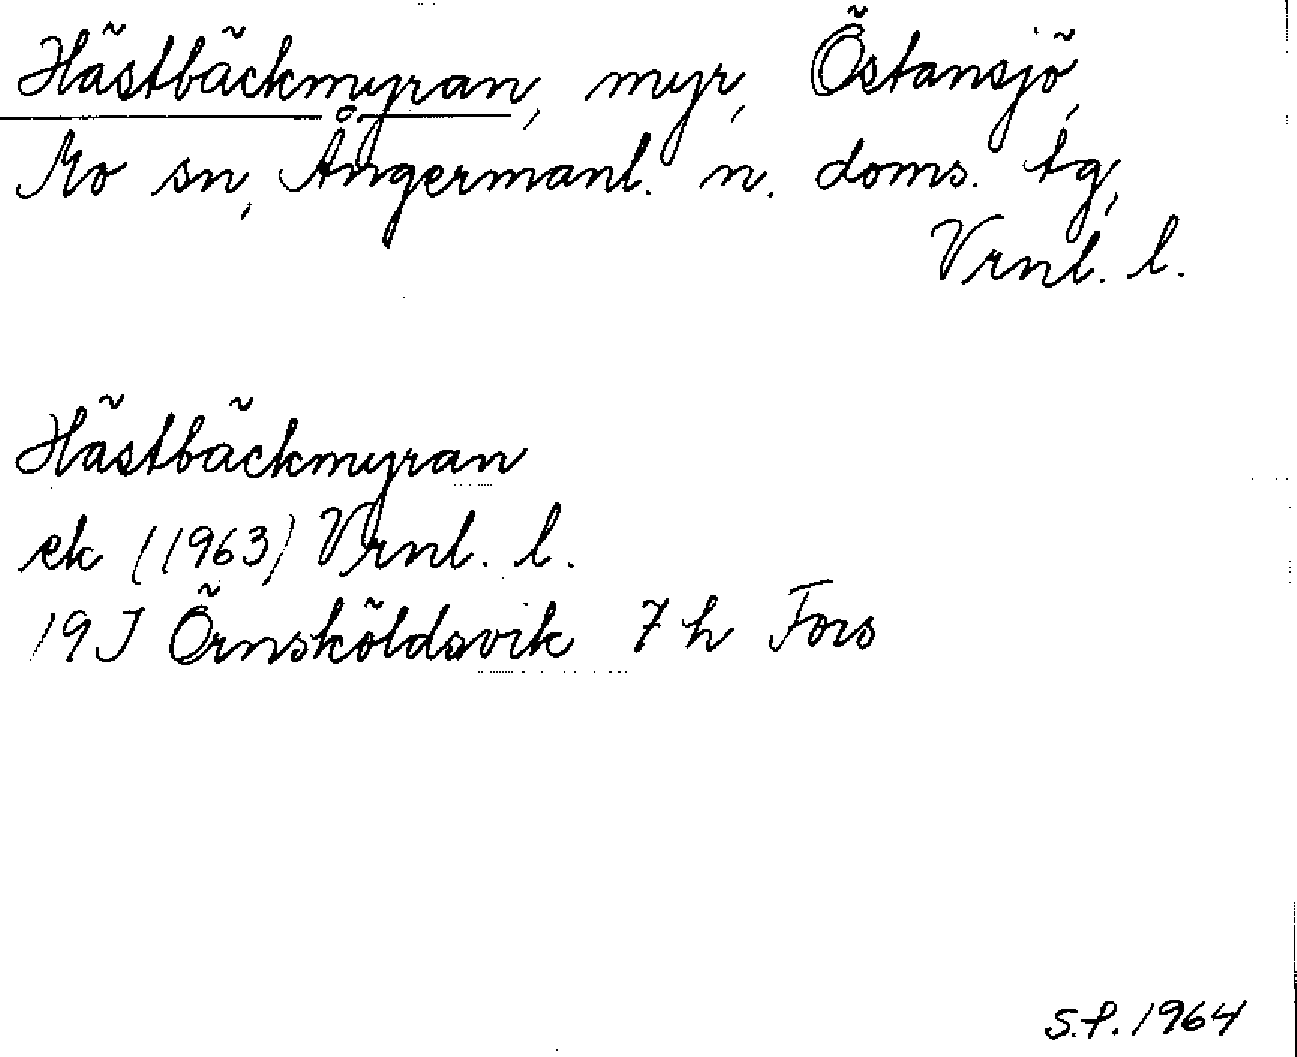 Hästbäckmyran, myr, Östansjö,
Mo sn, Ångermanl. n. doms. tg,
Vrnl. l.
Hästbäckmyran
ek (1963) Vrnl. l.
19J Örnsköldsvik 7 h Fors
S.P. 1964